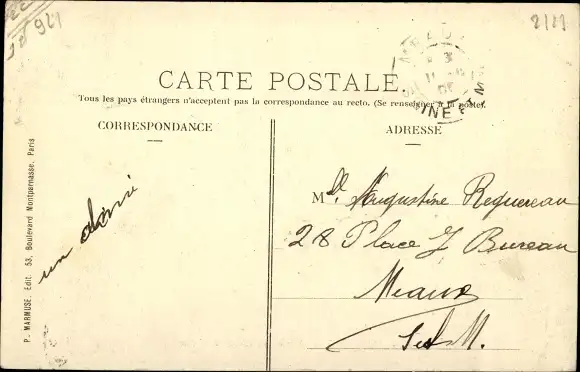 2121
CARTE POSTALE.
Tous les pays étrangers n'acceptent pas la correspondance au recto. (Se renseigner à la poste).
CORRESPONDANCE
ADRESSE
un
Mlle Augustine Requereau
28 Place J Bureau
Meaux
S et M.
P. MARMUSE. Édit. 53, Boulevard Montparnasse. Paris